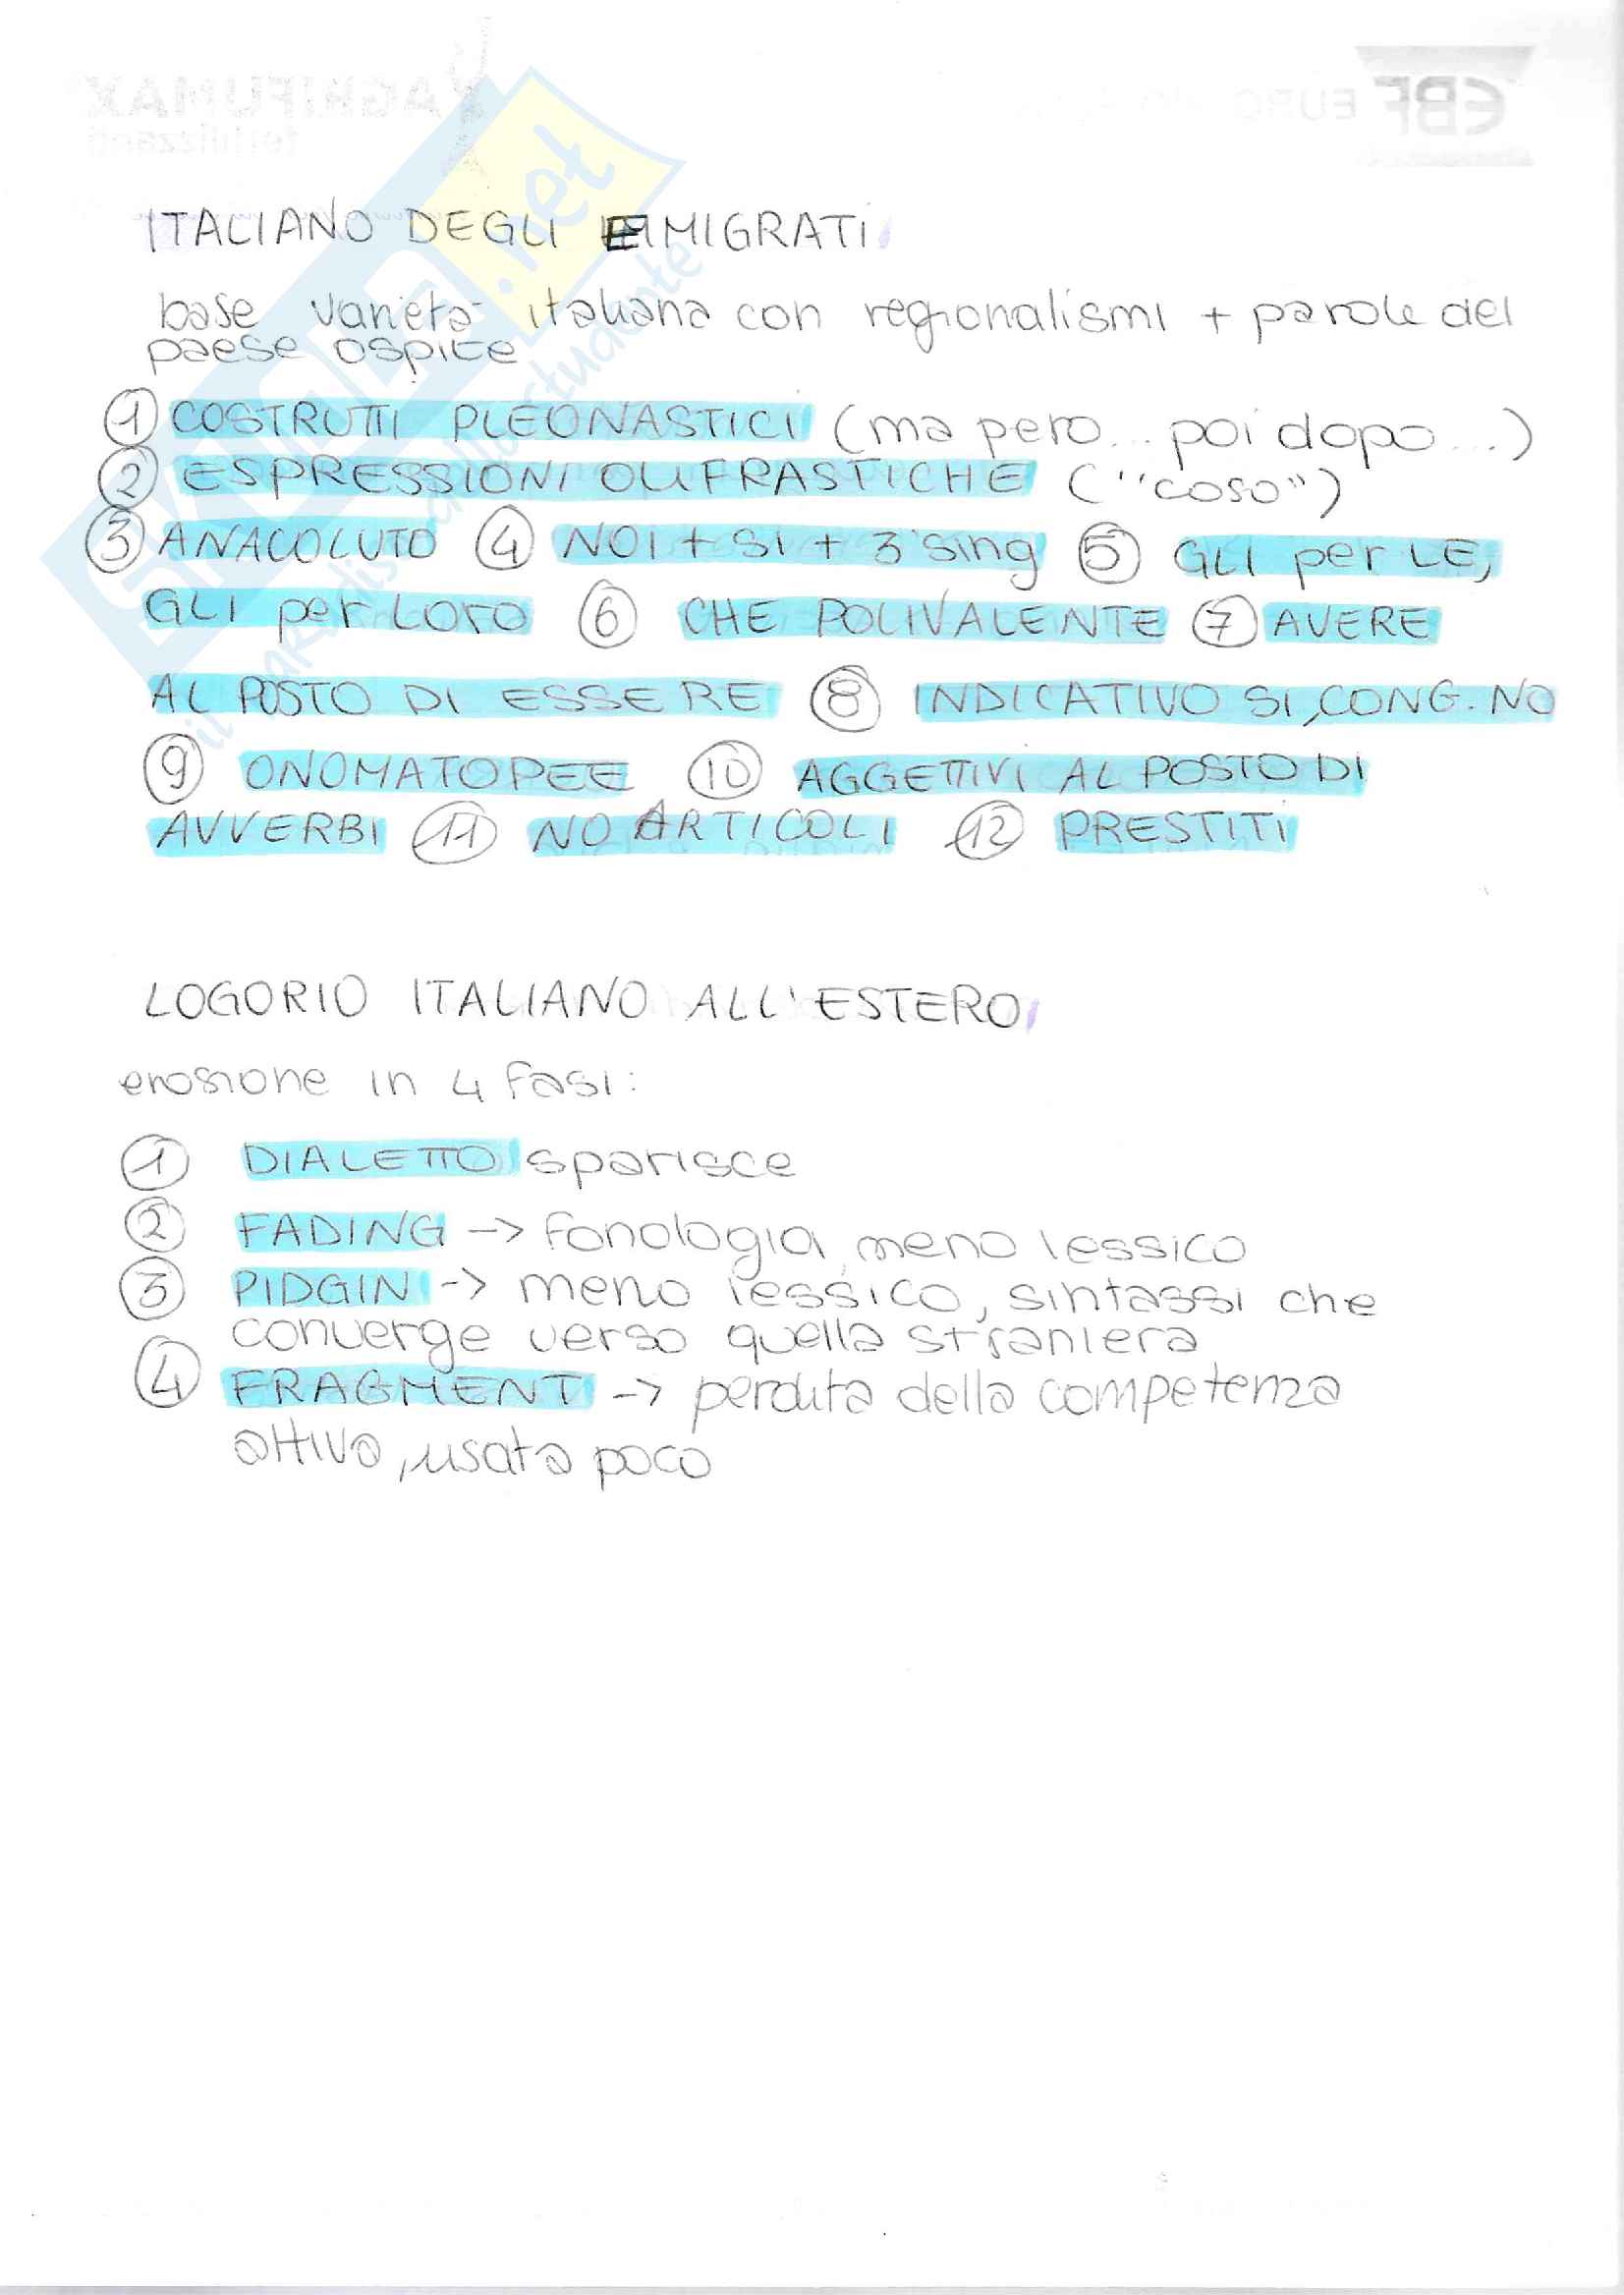 AGRIFUMAX
fertilizzanti
EBF EURO
SKUOLA.net
il paradiso dello studente
ITALIANO DEGLI EMIGRATI
base varietà italiana con regionalismi + parole del
paese ospite
1 COSTRUTTI PLEONASTICI (ma pero... poi dopo...)
2 ESPRESSIONI OLIFRASTICHE ("coso")
3 ANACOLUTO 4 NOI + SI + 3ª sing 5 GLI per LE,
GLI per LORO 6 CHE POLIVALENTE 7 AVERE
AL POSTO DI ESSERE 8 INDICATIVO SI, CONG. NO
9 ONOMATOPEE 10 AGGETTIVI AL POSTO DI
AVVERBI 11 NO ARTICOLI 12 PRESTITI
LOGORIO ITALIANO ALL'ESTERO
erosione in 4 fasi:
1 DIALETTO sparisce
2 FADING -> fonologia, meno lessico
3 PIDGIN -> meno lessico, sintassi che
converge verso quella straniera
4 FRAGMENT -> perduta della competenza
attiva, usata poco